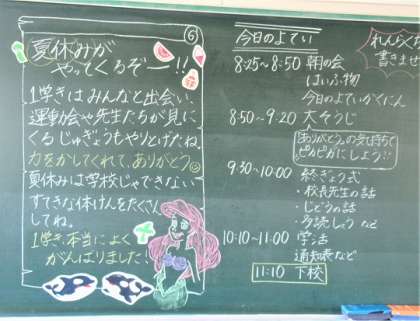 ⑥
夏休みが
やってくるぞー!!
1学きはみんなと出会い、
運動会や先生たちが見に
くるじゅぎょうもやりとげたね。
力をかしてくれて、ありがとう
夏休みは学校じゃできない
すてきな体けんをたくさん
してね。
1学き、本当によく
がんばりました!
今日のよてい
8:25~8:50 朝の会
はいふ物
今日のよていかくにん
8:50~9:20 大そうじ
ありがとうの気持ちで
ピカピカにしよう!!
9:30~10:00 終ぎょう式
・校長先生の話
・じどうの話
・多読しょう など
10:10~11:00 学活
通知表など
11:10 下校
れんらく
書きませ